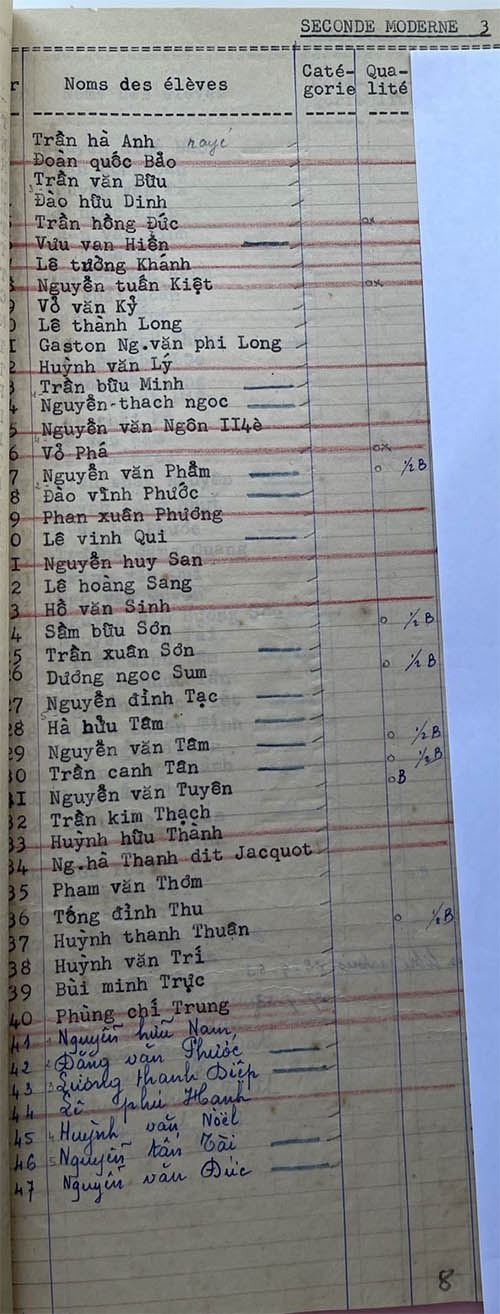 SECONDE MODERNE 3
r Noms des élèves Caté-gorie Qua-lité
Trần hà Anh rayé
Đoàn quốc Bảo
Trần văn Bửu
Đào hữu Dinh
Trần hồng Đức ox
Vưu van Hiền
Lê tưởng Khánh
Nguyễn tuấn Kiệt ox
9 Vỏ văn Kỷ
0 Lê thành Long
I Gaston Ng.văn phi Long
2 Huỳnh văn Lý
3 Trần bữu Minh
4 Nguyễn-thach ngoc
5 Nguyễn văn Ngôn II4è
6 Vỏ Phá ox
7 Nguyễn văn Phẩm o 1/2 B
8 Đào vĩnh Phước
9 Phan xuân Phương
0 Lê vinh Qui
I Nguyễn huy San
2 Lê hoàng Sang
3 Hồ văn Sinh
4 Sầm bữu Sơn o 1/2 B
5 Trần xuân Sơn
26 Dương ngoc Sum o 1/2 B
27 Nguyễn đình Tạc
28 Hà hửu Tâm
29 Nguyễn văn Tâm o 1/2 B
30 Trần canh Tân o 1/2 B
3I Nguyễn văn Tuyên oB
32 Trần kim Thạch
33 Huỳnh hữu Thành
34 Ng.hà Thanh dit Jacquot
35 Pham văn Thơm
36 Tống đình Thu
37 Huỳnh thanh Thuận o 1/2 B
38 Huỳnh văn Trí
39 Bùi minh Trực
40 Phùng chí Trung
41 Nguyễn hữu Nam
42 Đặng văn Phước
43 Lương thanh Điệp
44 Lê phú Hạnh
45 Huỳnh văn Noël
46 Nguyễn tấn Tài
47 Nguyễn văn Đức
8